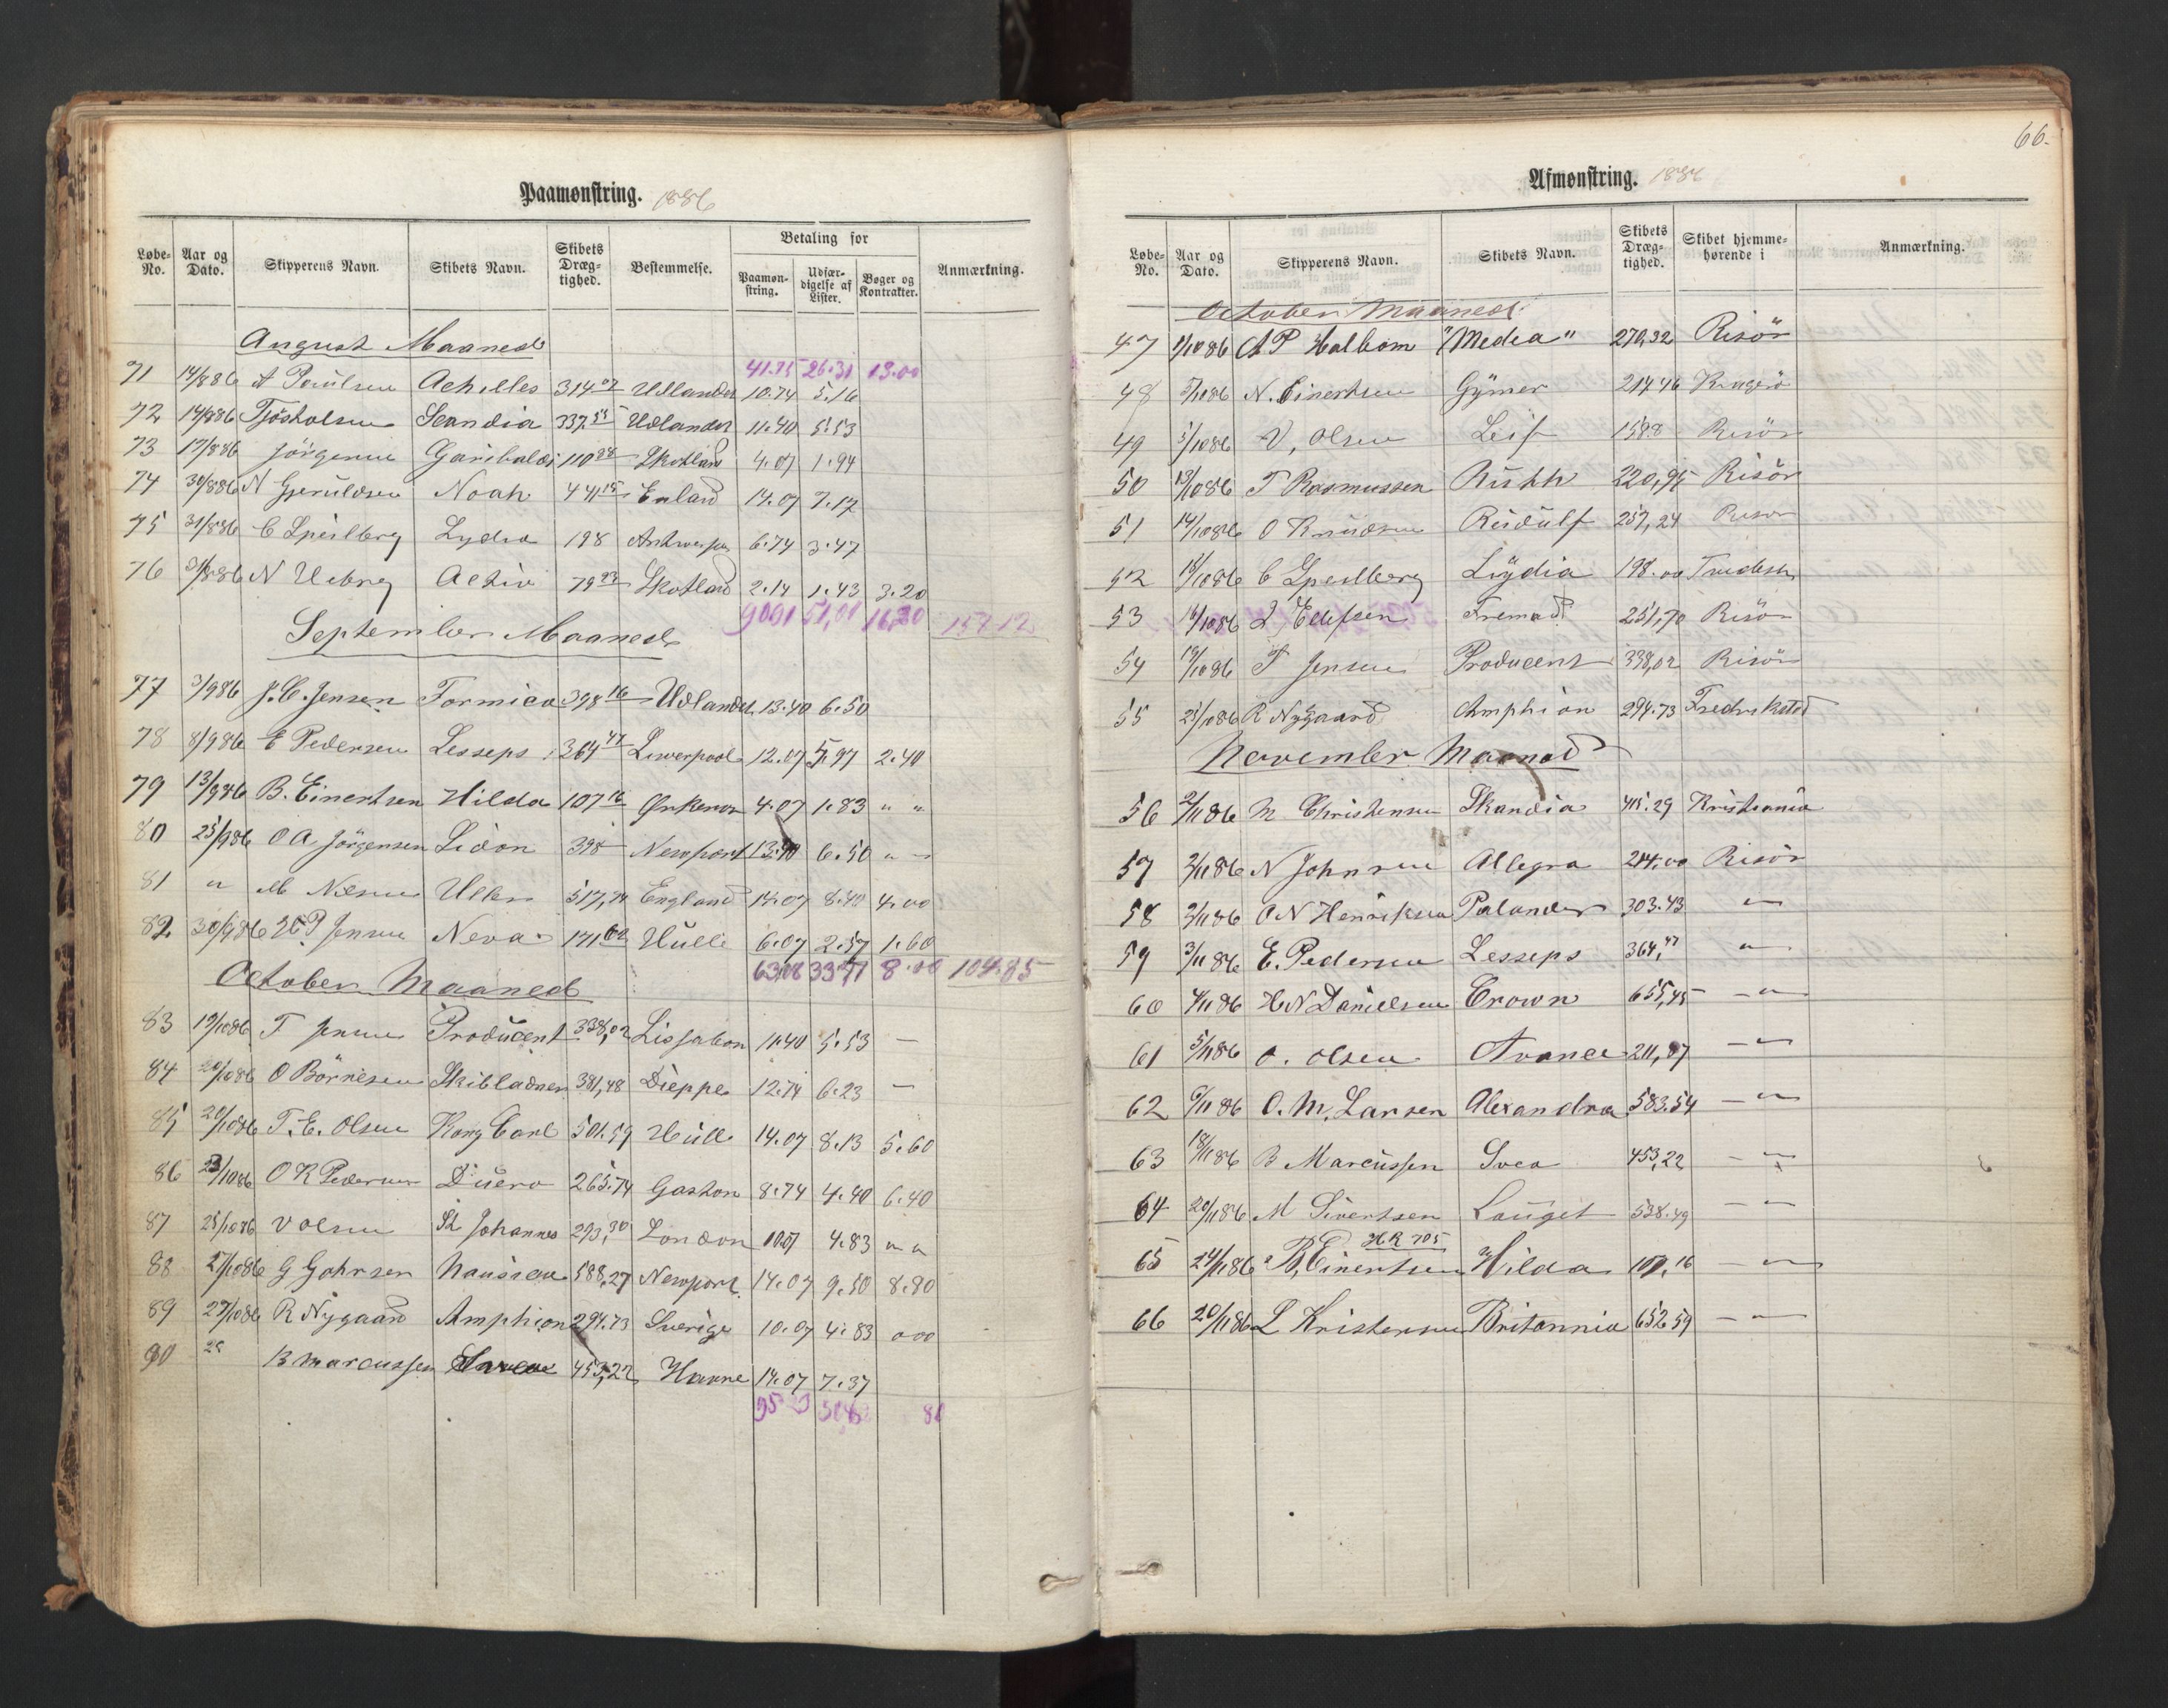 Paamønstring. 1886
Løbe-No. Aar og Dato. Skipperens Navn. Skibets Navn. Skibets Dræg-tighed. Bestemmelse. Betaling for Paamøn-string. Udfær-digelse af Lister. Bøger og Kontrakter. Anmærkning.
August Maaned
41.75 26.31 13.00
71 14/8 86 A Paulsen Achilles 314 07 Udlandet 10.74 5.16
72 14/8 86 Tjösholsen Scandia 337,55 Udlandet 11.40 5.53
73 17/8 86 Jörgensen Garibaldi 110 88 Skotland 4.07 1.94
74 30/8 86 N Gjeruldsen Noah 441 15 Enland 14.07 7.17
75 31/8 86 C Speilberg Lydia 198 Antwerpen 6.74 3.47
76 31/8 86 N Ueberg Activ 79 23 Skotland 2.14 1.43 3.20
90.91 51,01 16,20 157 12
September Maaned
77 3/9 86 J. C. Jensen Formica 398 16 Udlandet 13.40 6.50
78 8/9 86 E Pedersen Lesseps 364 47 Liverpool 12.07 5,97 2.40
79 13/9 86 B. Einertsen Hilda 107 16 Ørkenør 4.07 1.83 " "
80 25/9 86 O A Jörgensen Lidon 398 Newport 13.40 6.50 " "
81 " M Nilsen Uller 517,24 England 14.07 8.40 4.00
82. 30/9 86 Jensen Neva 171 60 Hull 6.07 2.57 1.60
63.08 33 77 8.00 104.85
October Maaned
83 19/10 86 T Jensen Producent 338,02 Lissabon 11.40 5.53 —
84 20/10 86 O Börresen Skibladner 381,48 Dieppe 12.74 6.23 —
85 20/10 86 T. E. Olsen Kong Carl 501.59 Hull 14.07 8.13 5.60
86 23/10 86 O K Pedersen Duero 265.74 Gaston 8.74 4.40 6.40
87 25/10 86 V Olsen St Johannes 293,30 London 10.07 4.83 " "
88 27/10 86 G Gahrsen Nausicau 588,27 Newport 14.07 9.50 8.80
89 27/10 86 R Nygaard Amphion 294.73 Sverige 10.07 4.83 000
90 28 B Marcussen 453,22 Havre 14.07 7.37
66.
Afmønstring. 1886
Løbe-No. Aar og Dato. Skipperens Navn. Skibets Navn. Skibets Dræg-tighed. Skibet hjemme-hørende i Anmærkning.
October Maaned.
47 1/10 86 A P Halbom "Medea" 270,32 Risör
48 5/10 86 N. Einertsen Gymer 214 46 Kragerö
49 5/10 86 V, Olsen Leif 158.8 Risör
50 13/10 86 T Rasmussen Ruth 220,95 Risör
51 14/10 86 O Knudsen Rudulf 257,24 Risör
52 16/10 86 C Speilberg Lydia 198.00
53 16/10 86 L Ellefsen Fremad 251,70 Risör
54 19/10 86 T Jensen Producent 338,02 Risör
55 25/10 86 R Nygaard Amphion 294.73 Fredrikstad
November Maaned
56 2/11 86 M Christensen Skandia 415.29 Kristiania
57 2/11 86 N Johnsen Allegra 214.00 Risör
58 2/11 86 O N Henriksen Palander 303.43 — " —
59 3/11 86 E. Pedersen Lesseps 364,47 — " —
60 4/11 86 H N Danielsen Crown 655,45 — " —
61 5/11 86 O. Olsen Avance 211,87 — " —
62 6/11 86 O. M. Larsen Alexandra 583.54 — " —
63 18/11 86 B Marcussen Svea 453,22 — " —
64 20/11 86 M Sivertsen Lauget 538.49 — " —
HR 705
65 24/11 86 B, Einertsen Hilda 107.16 — " —
66 20/11 86 L Kristensen Britannia 652 59 — " —